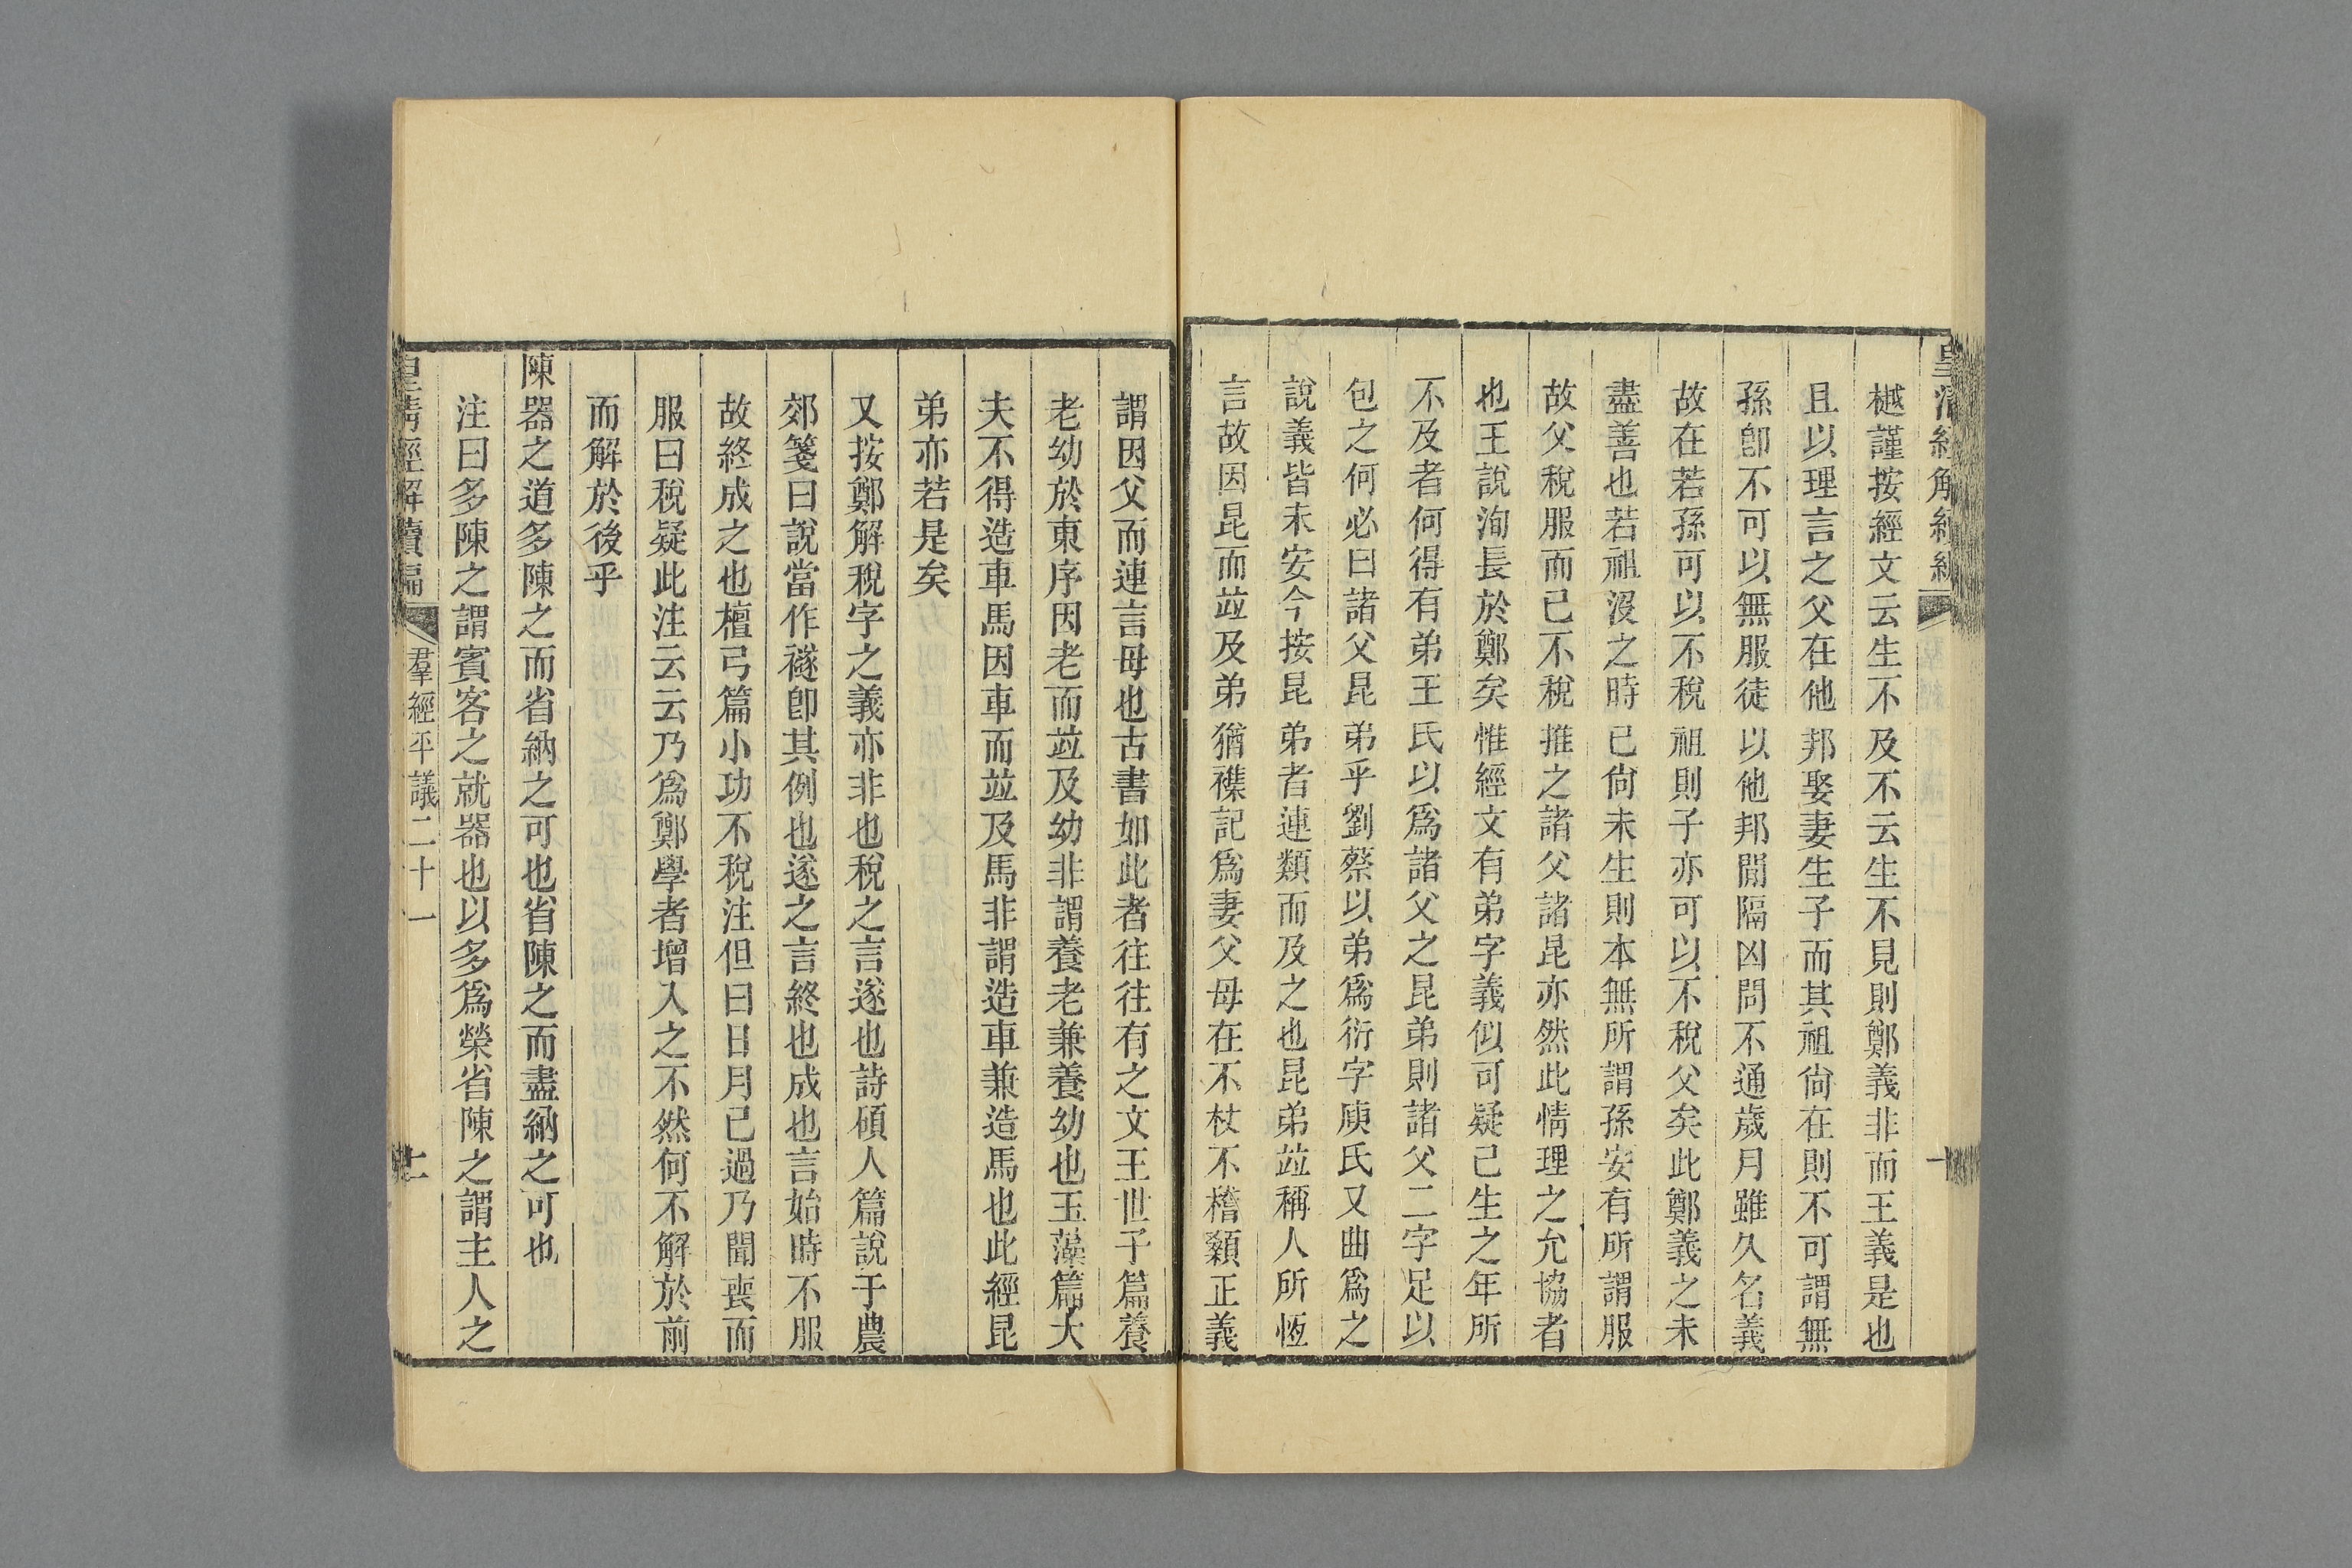 樾謹按經文云生不及不云生不見則鄭義非而王義是也
且以理言之父在他邦娶妻生子而其祖尙在則不可謂無
孫卽不可以無服徒以他邦閒隔凶問不通歲月雖久名義
故在若孫可以不稅祖則子亦可以不稅父矣此鄭義之未
盡善也若祖沒之時已尙未生則本無所謂孫安有所謂服
故父稅服而已不稅推之諸父諸昆亦然此情理之允協者
也王說洵長於鄭矣惟經文有弟字義似可疑己生之年所
不及者何得有弟王氏以爲諸父之昆弟則諸父二字足以
包之何必曰諸父昆弟乎劉蔡以弟爲衍字庾氏又曲爲之
說義皆未安今按昆弟者連類而及之也昆弟竝稱人所恆
言故因昆而竝及弟猶襍記爲妻父母在不杖不稽顙正義
謂因父而連言母也古書如此者往往有之文王世子篇養
老幼於東序因老而竝及幼非謂養老兼養幼也玉藻篇大
夫不得造車馬因車而竝及馬非謂造車兼造馬也此經昆
弟亦若是矣
又按鄭解稅字之義亦非也稅之言遂也詩碩人篇說于農
郊箋曰說當作襚卽其例也遂之言終也成也言始時不服
故終成之也檀弓篇小功不稅注但曰日月已過乃聞喪而
服曰稅疑此注云云乃爲鄭學者增入之不然何不解於前
而解於後乎
陳器之道多陳之而省納之可也省陳之而盡納之可也
注曰多陳之謂賓客之就器也以多爲榮省陳之謂主人之
皇淸經解續編
羣經平議二十一